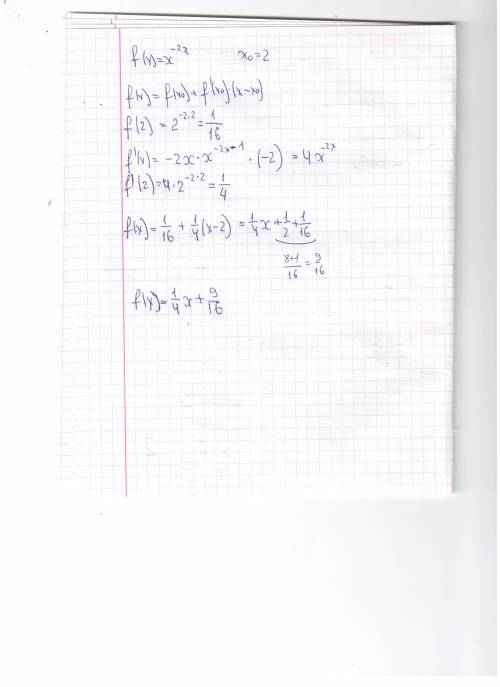 f(x)=x^{-2x} x₀=2
f(x)=f(x₀)+f'(x₀)·(x-x₀)
f(2)=2^{-2·2}=1/16
f'(x)=-2x·x^{-2x+1}·(-2)=4x^{-2x}
f'(2)=4·2^{-2·2}=1/4
f(x)=1/16+1/4(x-2)=1/4x+1/2+1/16
8+1/16=9/16
f(x)=1/4x+9/16